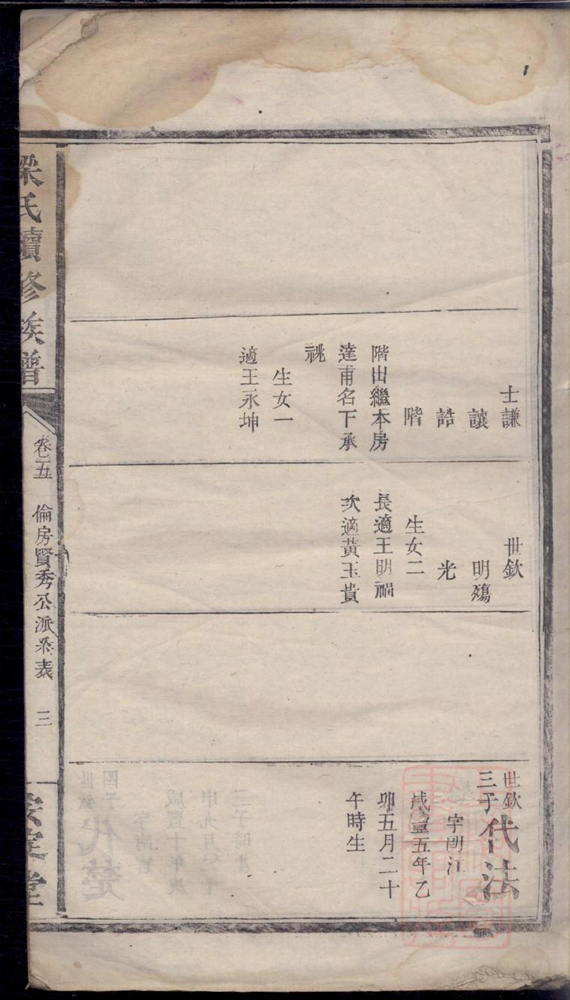 士謙
讓
誥
階
階出繼本房
達甫名下承
祧
生女一
適王永坤
世欽
明殤
光
生女二
長適王明
次適黃玉貴
世欽
三子
代法
字明江
咸豐五年乙
卯五月二十
午時生
梁氏續修族譜
卷五
倫房賢秀公派系表
三
安定堂